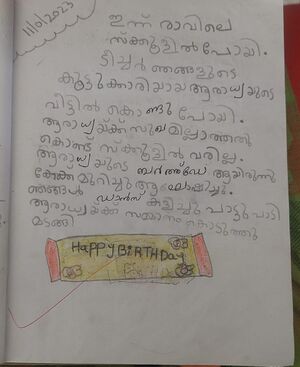 11/01/2023
ഇന്ന് രാവിലെ
സ്ക്കൂളിൽ പോയി.
ടീച്ചർ ഞങ്ങളുടെ
കൂട്ടുക്കാരിയായ ആരാധ്യയുടെ
വീട്ടിൽ കൊണ്ടു പോയി.
ആരാധ്യയ്ക്ക് സുഖമില്ലാത്തതു
കൊണ്ട് സ്ക്കൂളിൽ വരില്ല.
ആരാധ്യയുടെ ബർത്ത്ഡേ ആയിരുന്നു
കേക്ക് മുറിച്ചു ആഘോഷിച്ചു.
ഞങ്ങൾ ഡാൻസ് കളിച്ചു പാട്ടു പാടി
ആരാധ്യയ്ക്ക് സമ്മാനം കൊടുത്തു
മടങ്ങി
HAPPY BIRTHDay